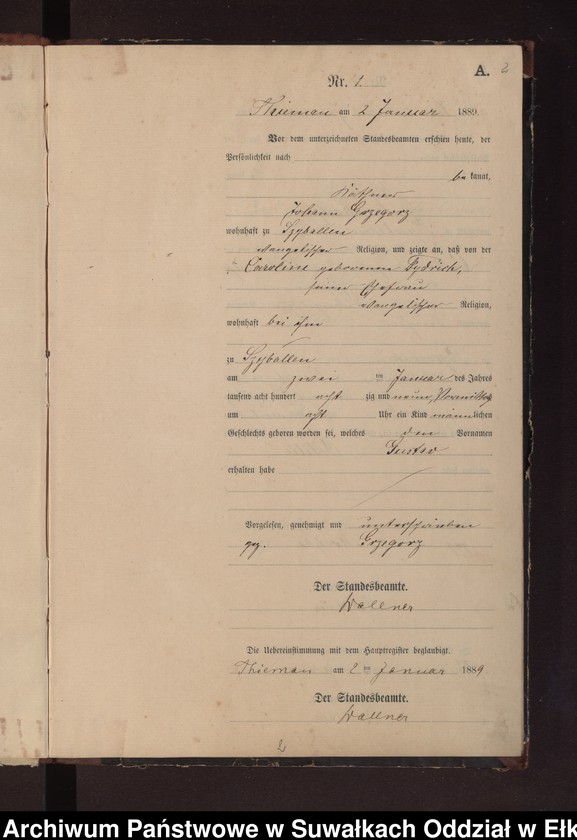 A. 2
Nr. 1.
Thieman am 2 Januar 1889.
Vor dem unterzeichneten Standesbeamten erschien heute, der
Persönlichkeit nach
be kannt,
Käthner
Johann Grzegorz
wohnhaft zu Szyballen
evangelischer Religion, und zeigte an, daß von der
Caroline geborenen Fydrich,
seiner Ehefrau
evangelischer Religion,
wohnhaft bei ihm
zu Szyballen
am zwei ten Januar des Jahres
tausend acht hundert acht zig und neun, Vormittag
um acht Uhr ein Kind männlichen
Geschlechts geboren worden sei, welches den Vornamen
Gustav
erhalten habe
Vorgelesen, genehmigt und unterschrieben
gez. Grzegorz
Der Standesbeamte.
Wallner
Die Uebereinstimmung mit dem Hauptregister beglaubigt.
Thieman am 2 ten Januar 1889
Der Standesbeamte.
Wallner
2
Archiwum Państwowe w Suwałkach Oddział w Ełk